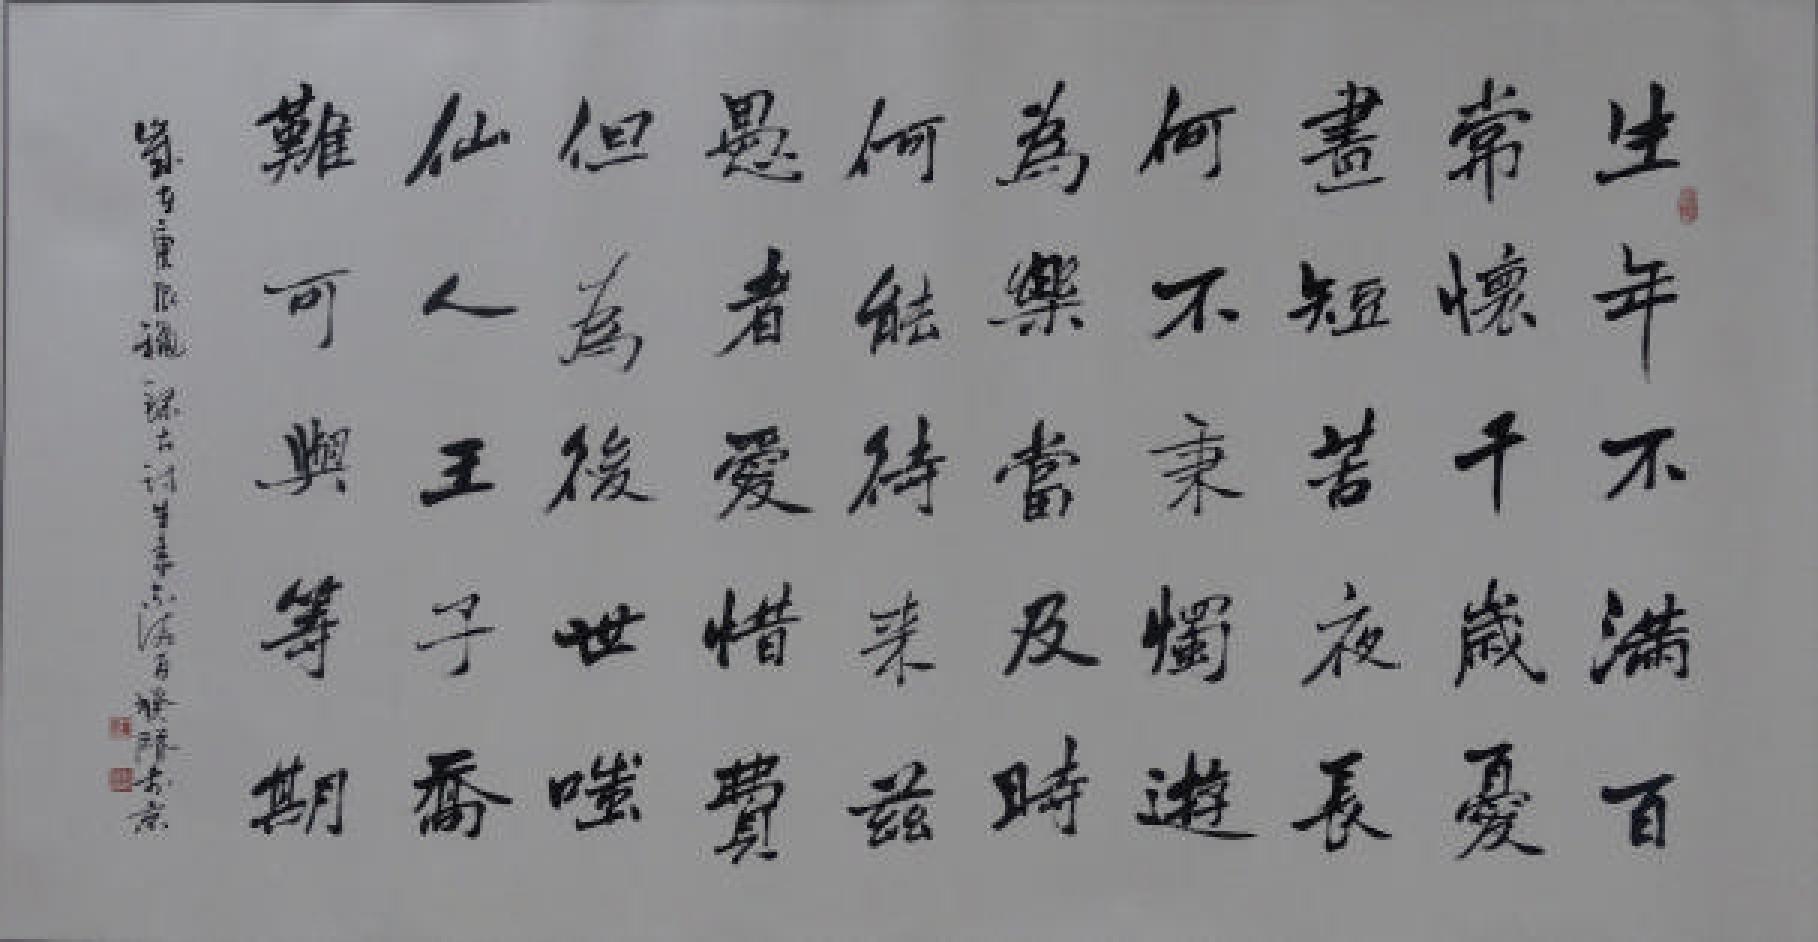 生年不滿百
常懷千歲憂
晝短苦夜長
何不秉燭遊
為樂當及時
何能待来茲
愚者愛惜費
但為後世嗤
仙人王子喬
難可與等期
錄古詩生年不滿百